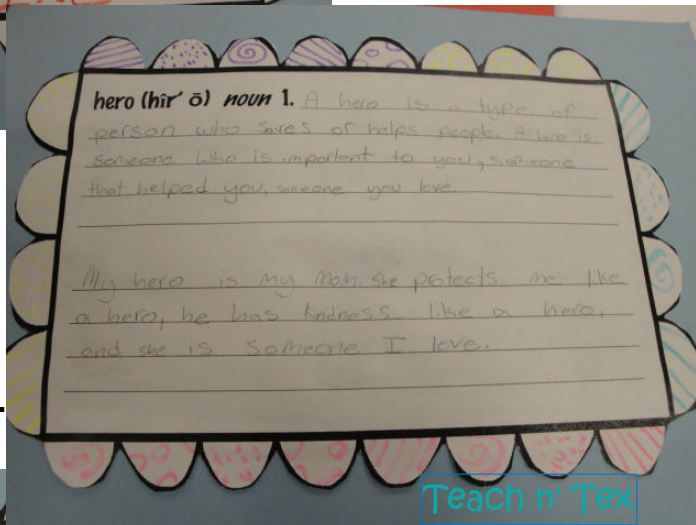 hero (hîr′ ō) noun 1. A hero is a type of
person who saves or helps people. A hero is
someone who is important to you, someone
that helped you, someone you love.
My hero is my mom. she protects me like
a hero, he has kindness like a hero,
and she is someone I love.
Teach n' Tex